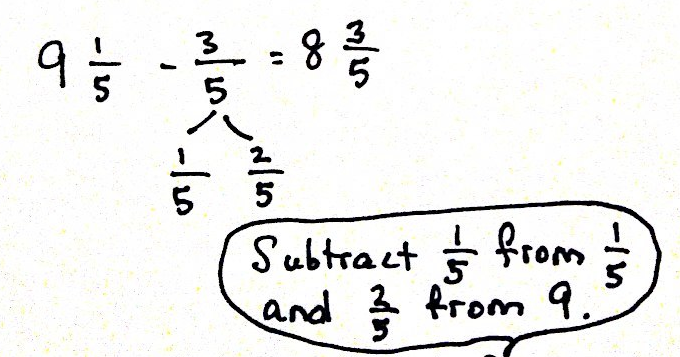 9 1/5 - 3/5 = 8 3/5
1/5 2/5
Subtract 1/5 from 1/5
and 2/5 from 9.